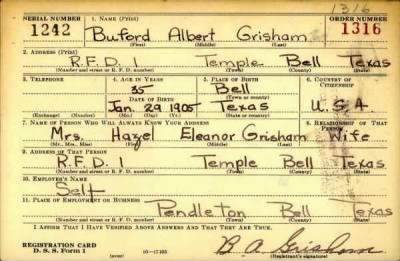 1316
SERIAL NUMBER 1. NAME (Print) ORDER NUMBER
1242 Buford Albert Grisham 1316
(First) (Middle) (Last)
2. ADDRESS (Print)
R.F.D. 1 Temple Bell Texas
(Number and street or R. F. D. number) (Town) (County) (State)
3. TELEPHONE 4. AGE IN YEARS 5. PLACE OF BIRTH 6. COUNTRY OF CITIZENSHIP
35 Bell
DATE OF BIRTH (Town or county)
Jan. 29 1905 Texas U.S.A.
(Exchange) (Number) (Mo.) (Day) (Yr.) (State or country)
7. NAME OF PERSON WHO WILL ALWAYS KNOW YOUR ADDRESS 8. RELATIONSHIP OF THAT PERSON
Mrs. Hazel Eleanor Grisham Wife
(Mr., Mrs., Miss) (First) (Middle) (Last)
9. ADDRESS OF THAT PERSON
R.F.D. 1 Temple Bell Texas
(Number and street or R. F. D. number) (Town) (County) (State)
10. EMPLOYER'S NAME
Self
11. PLACE OF EMPLOYMENT OR BUSINESS
Pendleton Bell Texas
(Number and street or R. F. D. number) (Town) (County) (State)
I AFFIRM THAT I HAVE VERIFIED ABOVE ANSWERS AND THAT THEY ARE TRUE.
REGISTRATION CARD
D. S. S. Form 1 (over) B. A. Grisham
(Registrant's signature)